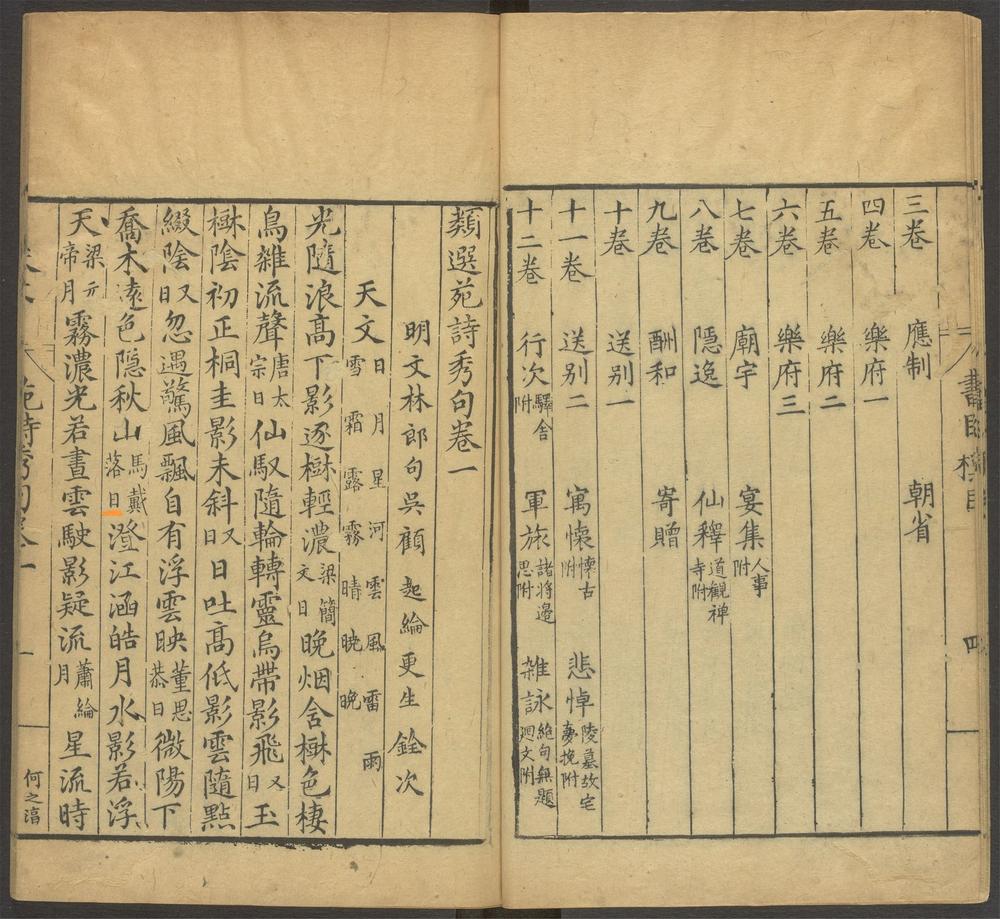 三卷　應制　朝省
四卷　樂府一
五卷　樂府二
六卷　樂府三
七卷　廟宇　宴集人事附
八卷　隱逸　仙釋道觀禅寺附
九卷　酬和　寄贈
十卷　送别一
十一卷　送别二　寓懷懷古附　悲悼陵墓故宅夢挽附
十二卷　行次驛舎附　軍旅諸將邊思附　雜詠絶句無題廻文附
四
類選苑詩秀句卷一
明文林郎句吳顧起綸更生　銓次
天文日月星河雲風雷雨雪霜露霧晴晓晚
光隨浪高下影逐樹輕濃梁簡文日晚烟含樹色棲
鳥雜流聲唐太宗日仙馭隨輪轉靈烏帶影飛又日玉
樹陰初正桐圭影未斜又日日吐高低影雲隨點
綴陰又日忽遇驚風飄自有浮雲映董思恭日微陽下
喬木遠色隐秋山馬戴落日澄江涵皓月水影若浮
天梁元帝月霧濃光若晝雲駛影疑流蕭綸月星流時
苑詩秀句卷一
一
何之𣸣